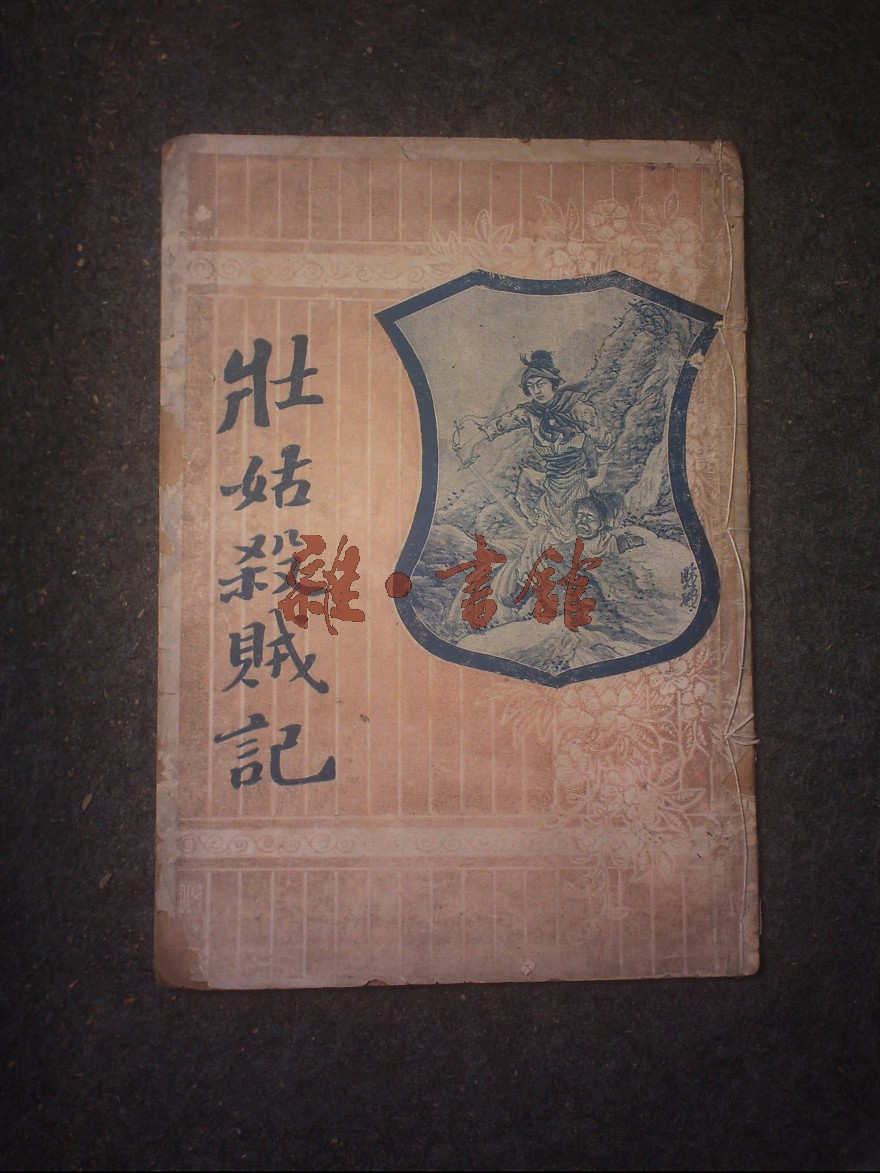 壯姑殺賊記
雜·書館